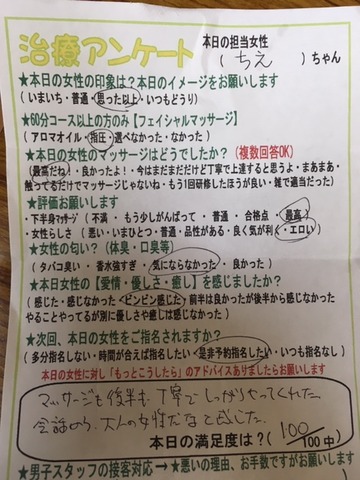 治療アンケート
本日の担当女性
(ちえ)ちゃん
★本日の女性の印象は?本日のイメージをお願いします
(いまいち・普通・思った以上・いつもどうり)
★60分コース以上の方のみ【フェイシャルマッサージ】
(アロマオイル・指圧・選べなかった・なかった)
★本日の女性のマッサージはどうでしたか?(複数回答OK)
(最高だね!・良かったよ!・今はまだまだだけど丁寧で上達すると思うよ・まあまあ・
触ってるだけでマッサージじゃないね・もう1回研修したほうが良い・雑で適当だった)
★評価お願いします
・下半身マッサージ(不満・もう少しがんばって・普通・合格点・最高)
・女性らしさ(悪い・いまひとつ・普通・品性がある・良く気が利く・エロい)
★女性の匂い?(体臭・口臭等)
(タバコ臭い・香水強すぎ・気にならなかった・良かった)
★本日の女性の【愛情・優しさ・癒し】を感じましたか?
(感じた・感じなかった・ビンビン感じた)前半は良かったが後半から感じなかった
やることやってるが別に優しさや癒しは感じなかった)
★次回、本日の女性をご指名されますか?
(多分指名しない・時間が合えば指名したい・是非予約指名したい・いつも指名なし)
本日の女性に対し「もっとこうしたら」のアドバイスありましたらお願いします
マッサージも後半も丁寧でしっかりやってくれた。
会話のうち、大人の女性だなと感じた。
本日の満足度は?(100/100中)
★男子スタッフの接客対応→★悪いの理由、お手数ですがお願い